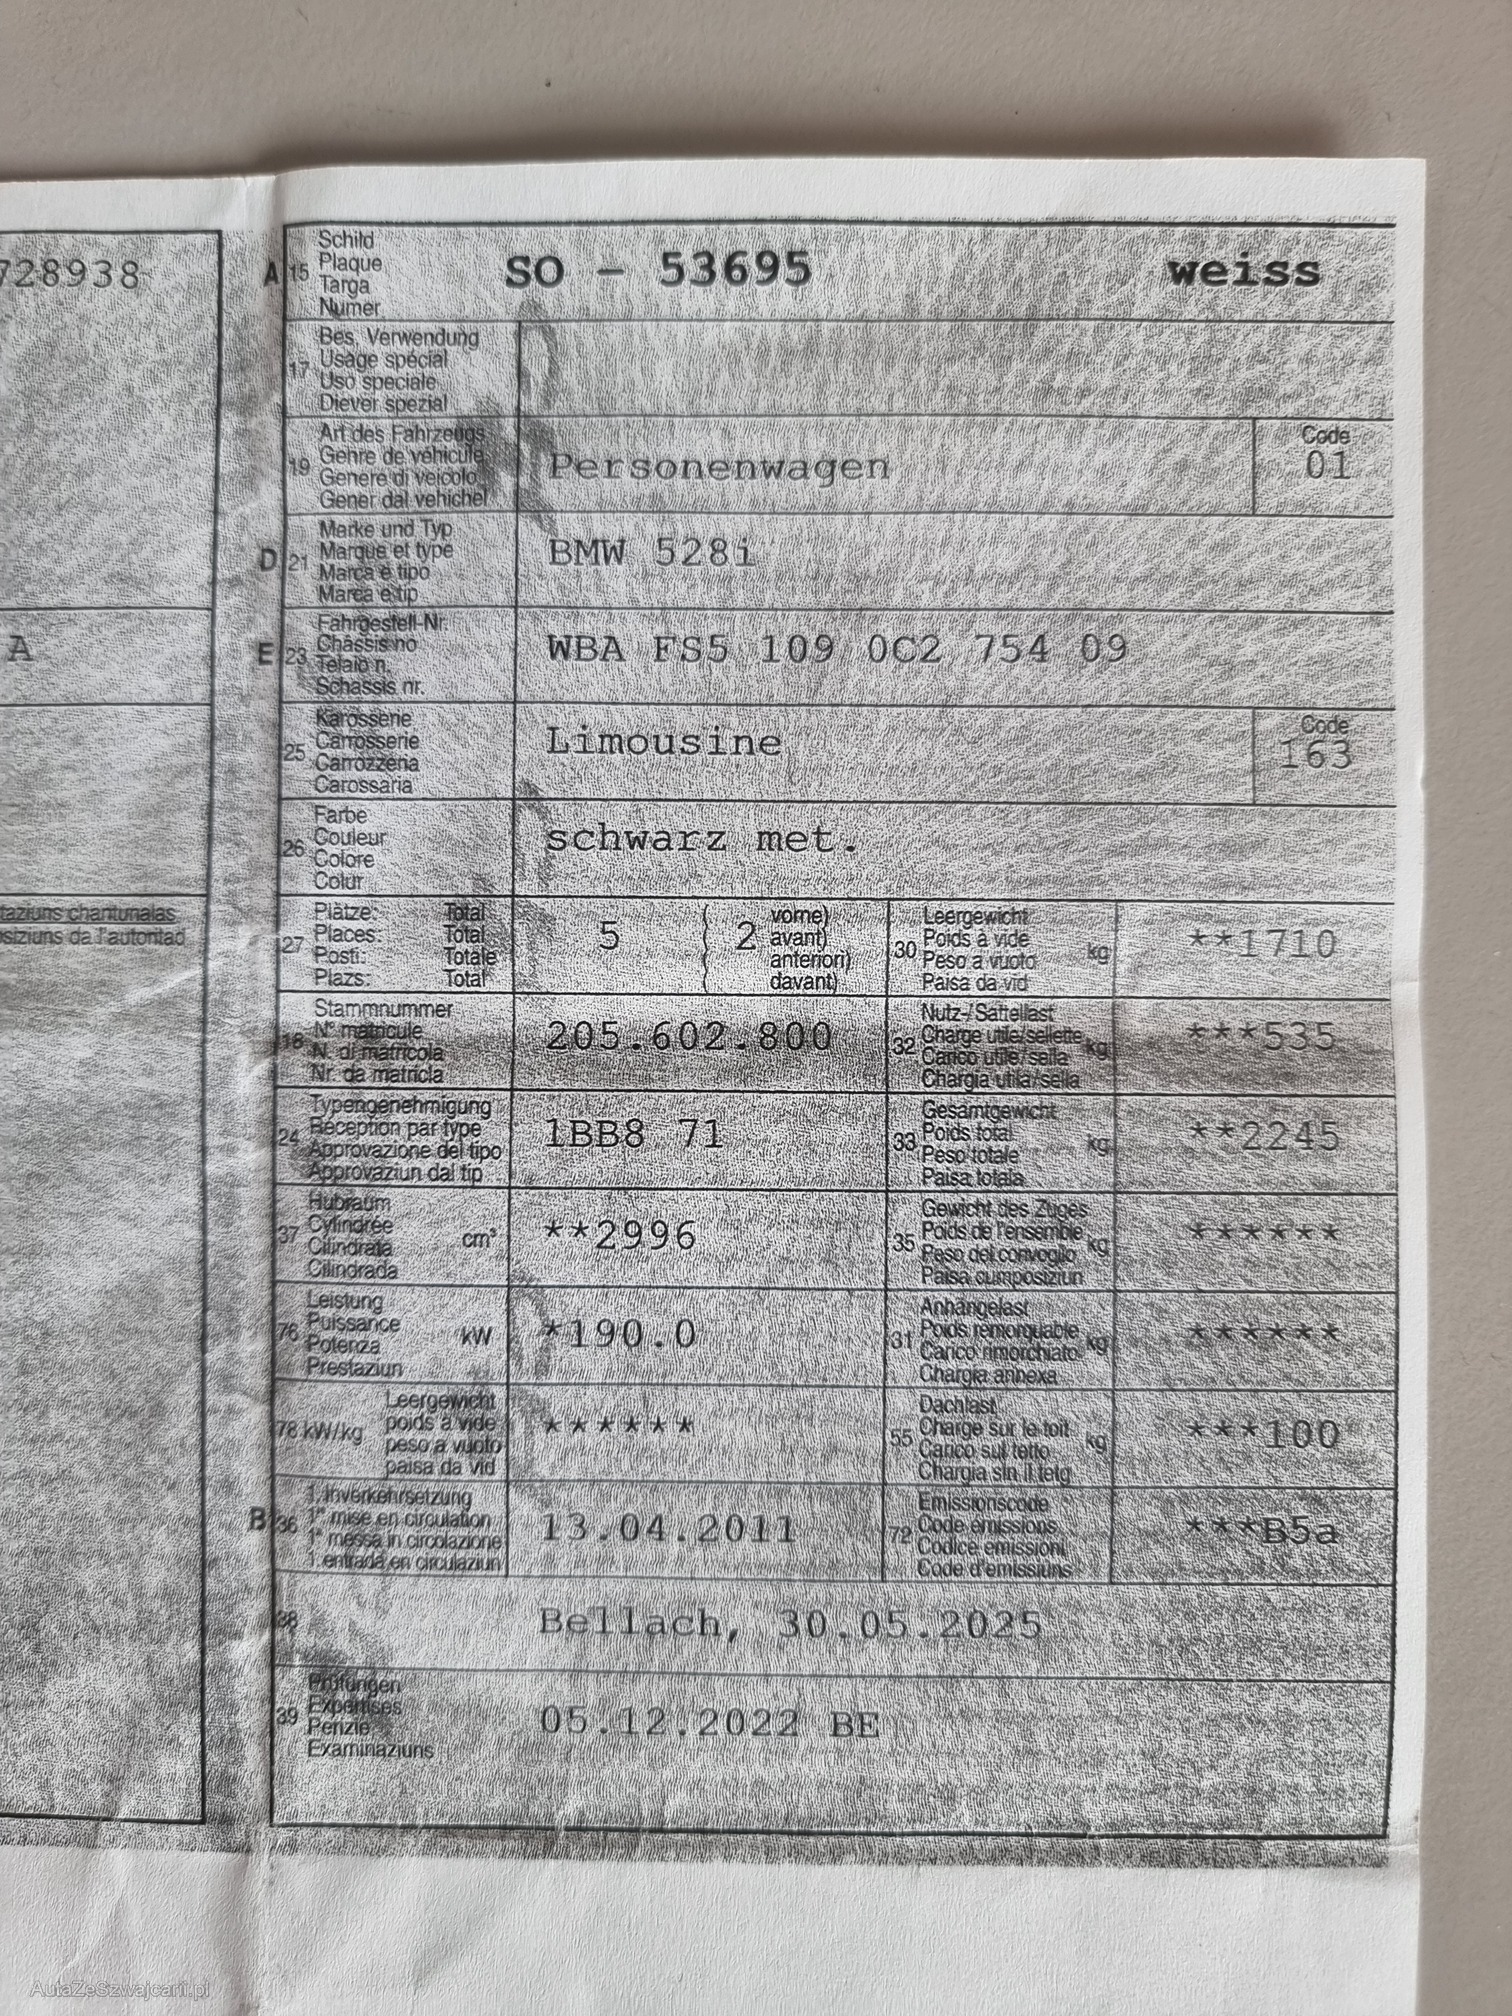 728938
A
taziuns chantunalas
siziuns da l'autoritad
A 15 Schild
Plaque
Targa
Numer
SO - 53695 weiss
17 Bes. Verwendung
Usage spécial
Uso speciale
Diever spezial
19 Art des Fahrzeugs
Genre de véhicule
Genere di veicolo
Gener dal vehichel
Personenwagen
Code
01
D 21 Marke und Typ
Marque et type
Marca e tipo
Marca e tip
BMW 528i
E 23 Fahrgestell-Nr.
Châssis no
Telaio n.
Schassis nr.
WBA FS5 109 0C2 754 09
25 Karosserie
Carrosserie
Carrozzeria
Carossaria
Limousine
Code
163
26 Farbe
Couleur
Colore
Colur
schwarz met.
27 Plätze: Total
Places: Total
Posti: Totale
Plazs: Total
5 ( 2 vorne)
( avant)
( anteriori)
( davant)
30 Leergewicht
Poids à vide
Peso a vuoto
Paisa da vid
kg
**1710
18 Stammnummer
N° matricule
N. di matricola
Nr. da matricla
205.602.800
32 Nutz-/Sattellast
Charge utile/sellette
Carico utile/sella
Chargia utila/sella
kg
***535
24 Typengenehmigung
Réception par type
Approvazione del tipo
Approvaziun dal tip
1BB8 71
33 Gesamtgewicht
Poids total
Peso totale
Paisa totala
kg
**2245
37 Hubraum
Cylindrée
Cilindrata
Cilindrada
cm³
**2996
35 Gewicht des Zuges
Poids de l'ensemble
Peso del convoglio
Paisa cumposiziun
kg
******
76 Leistung
Puissance
Potenza
Prestaziun
kW
*190.0
31 Anhängelast
Poids remorquable
Carico rimorchiato
Chargia annexa
kg
******
78 kW/kg
Leergewicht
poids à vide
peso a vuoto
paisa da vid
******
55 Dachlast
Charge sur le toit
Carico sul tetto
Chargia sin il tetg
kg
***100
B 36 1. Inverkehrsetzung
1re mise en circulation
1a messa in circolazione
1. entrada en circulaziun
13.04.2011
72 Emissionscode
Code émissions
Codice emissioni
Code d'emissiuns
***B5a
38
Bellach, 30.05.2025
39 Prüfungen
Expertises
Perizie
Examinaziuns
05.12.2022 BE
AutaZeSzwajcarii.pl